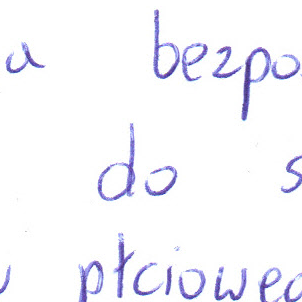 a bezpo
do s
płcioweg